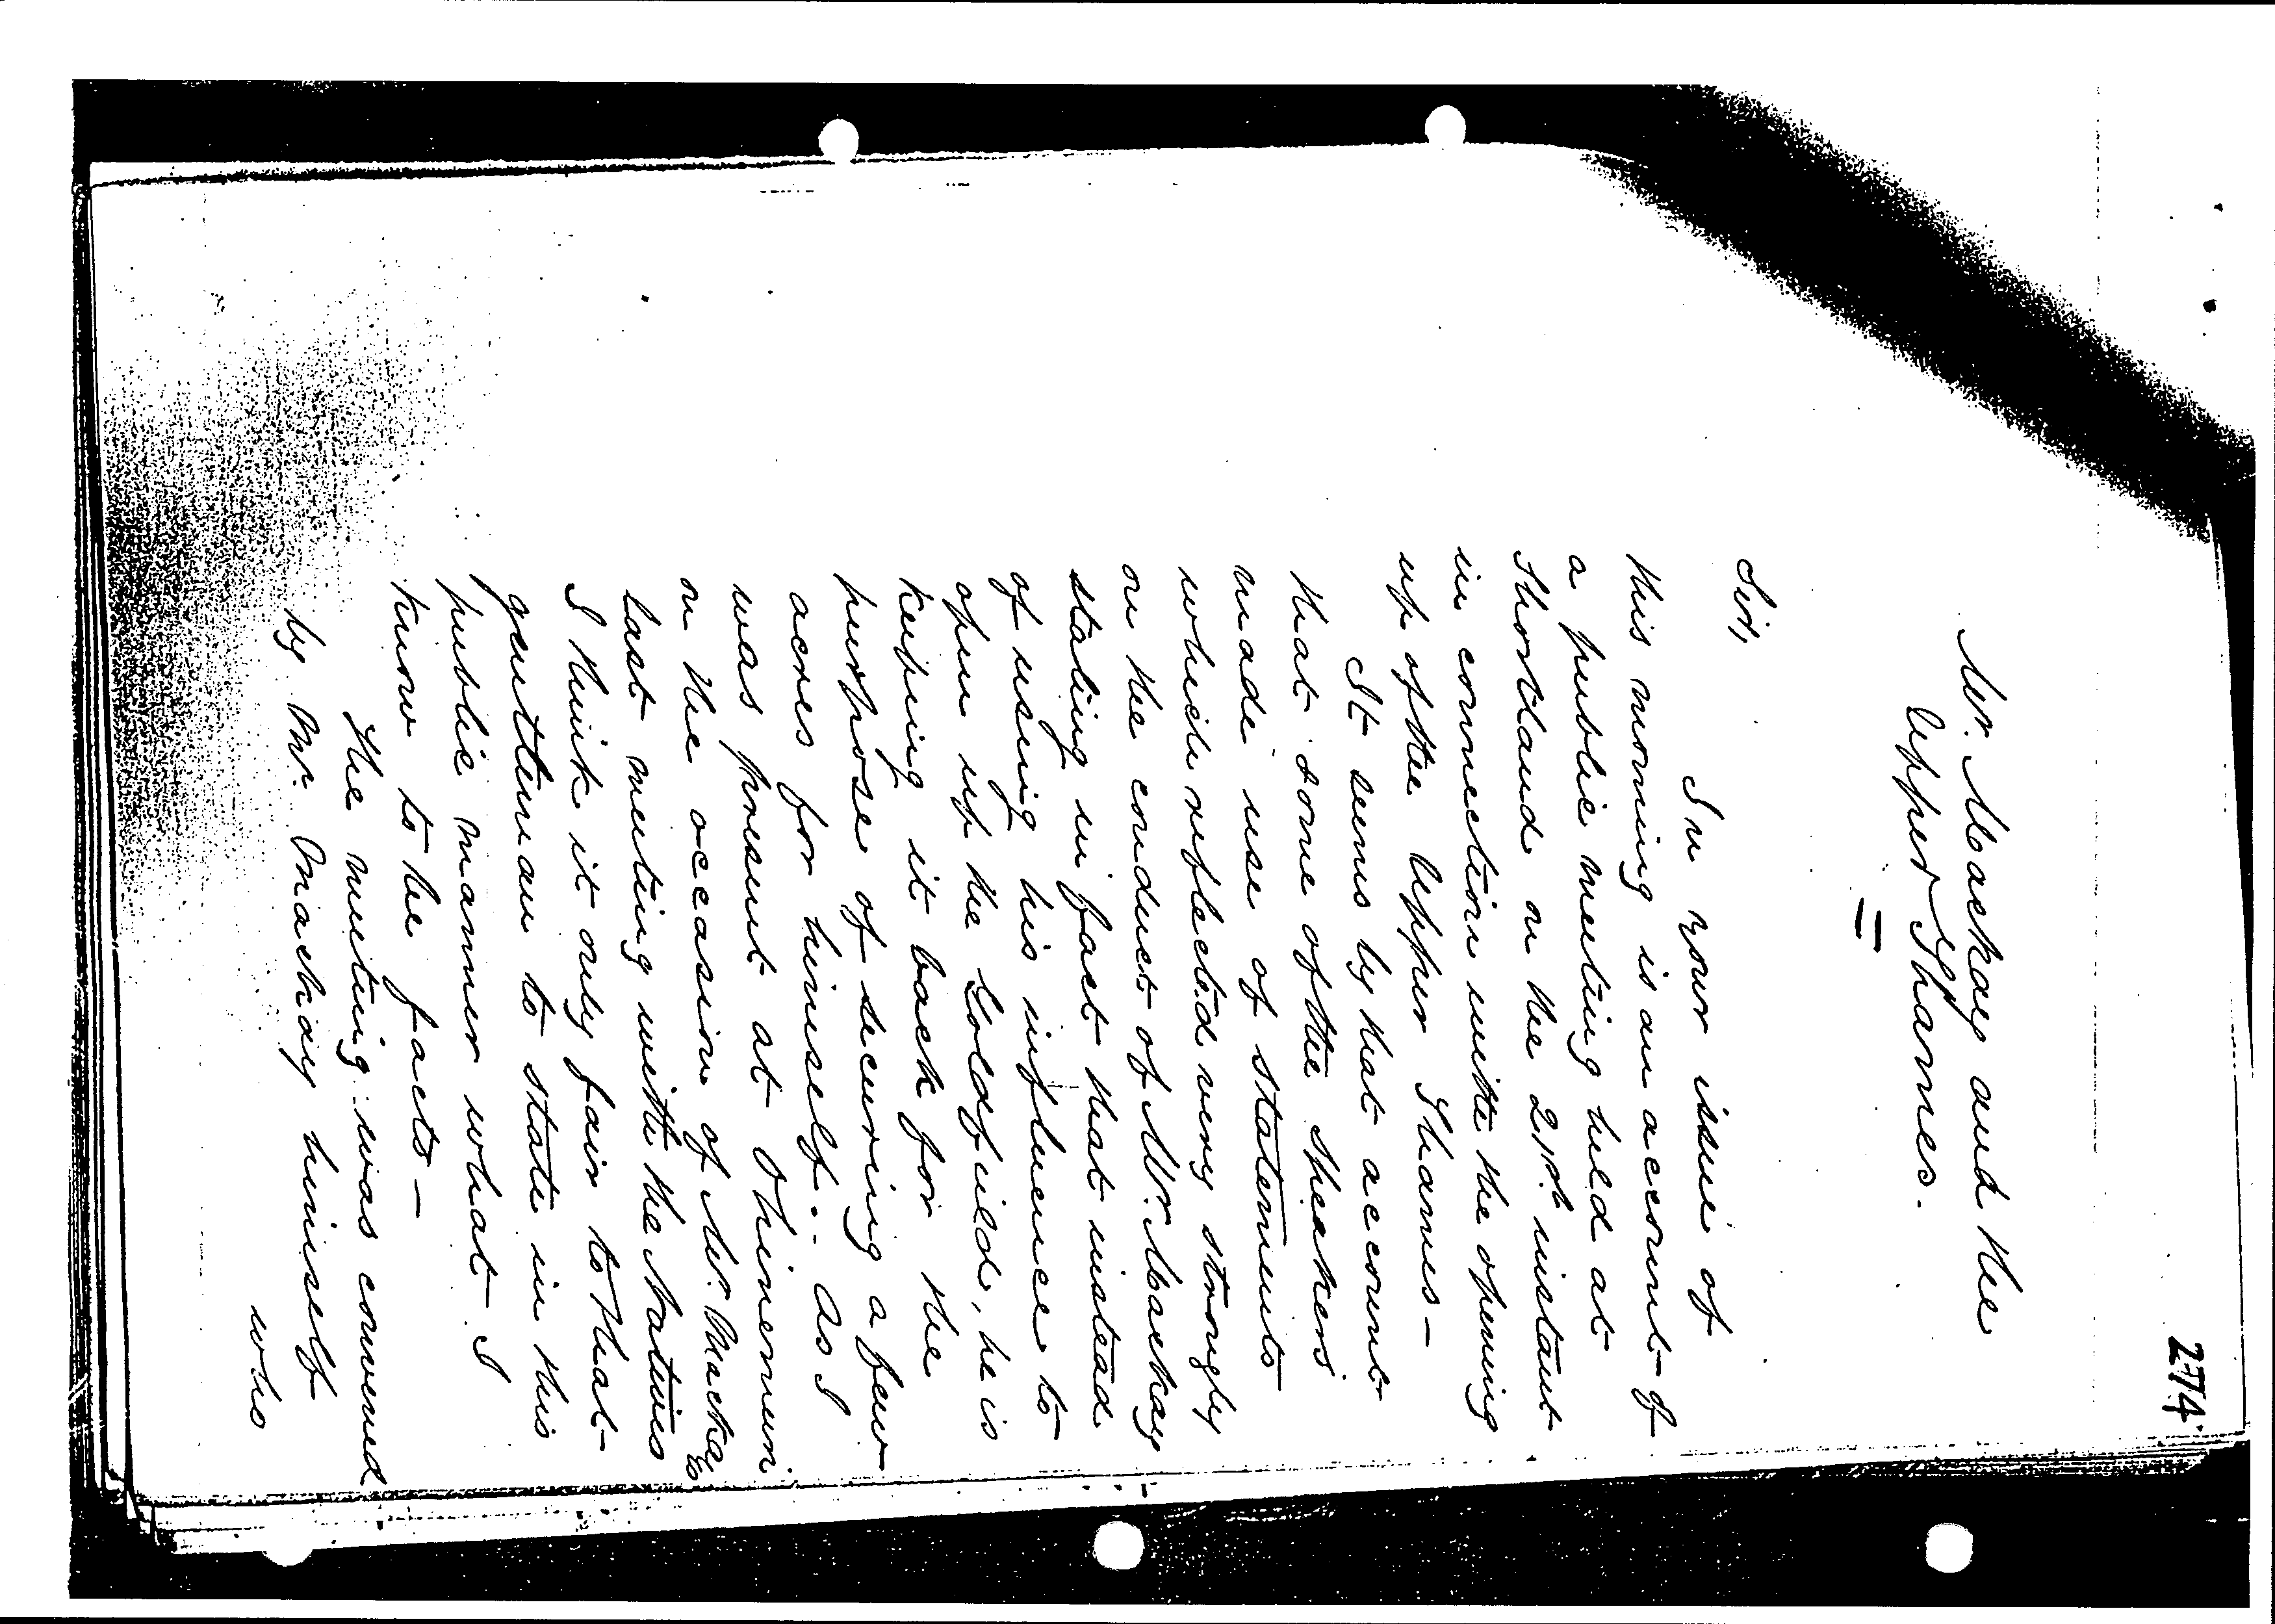 274
Mr. Mackay and the
Upper Thames.
Sir,
In your issue of
this morning is an account of
a public meeting held at
Shortland on the 21st. instant
in connection with the opening
up of the Upper Thames –
It seems by that account
that some of the speakers
made use of statements
which reflected very strongly
on the conduct of Mr. Mackay
stating in fact that instead
of using his influence to
open up the Goldfield, he is
keeping it back for the
purpose of securing a few
acres for himself.. As I
was present at Ohinemuri
on the occasion of Mr. Mackay's
last meeting with the Natives
I think it only fair to that
gentleman to state in this
public manner what I
know to be facts –
The meeting was convened
by Mr. Mackay himself
who